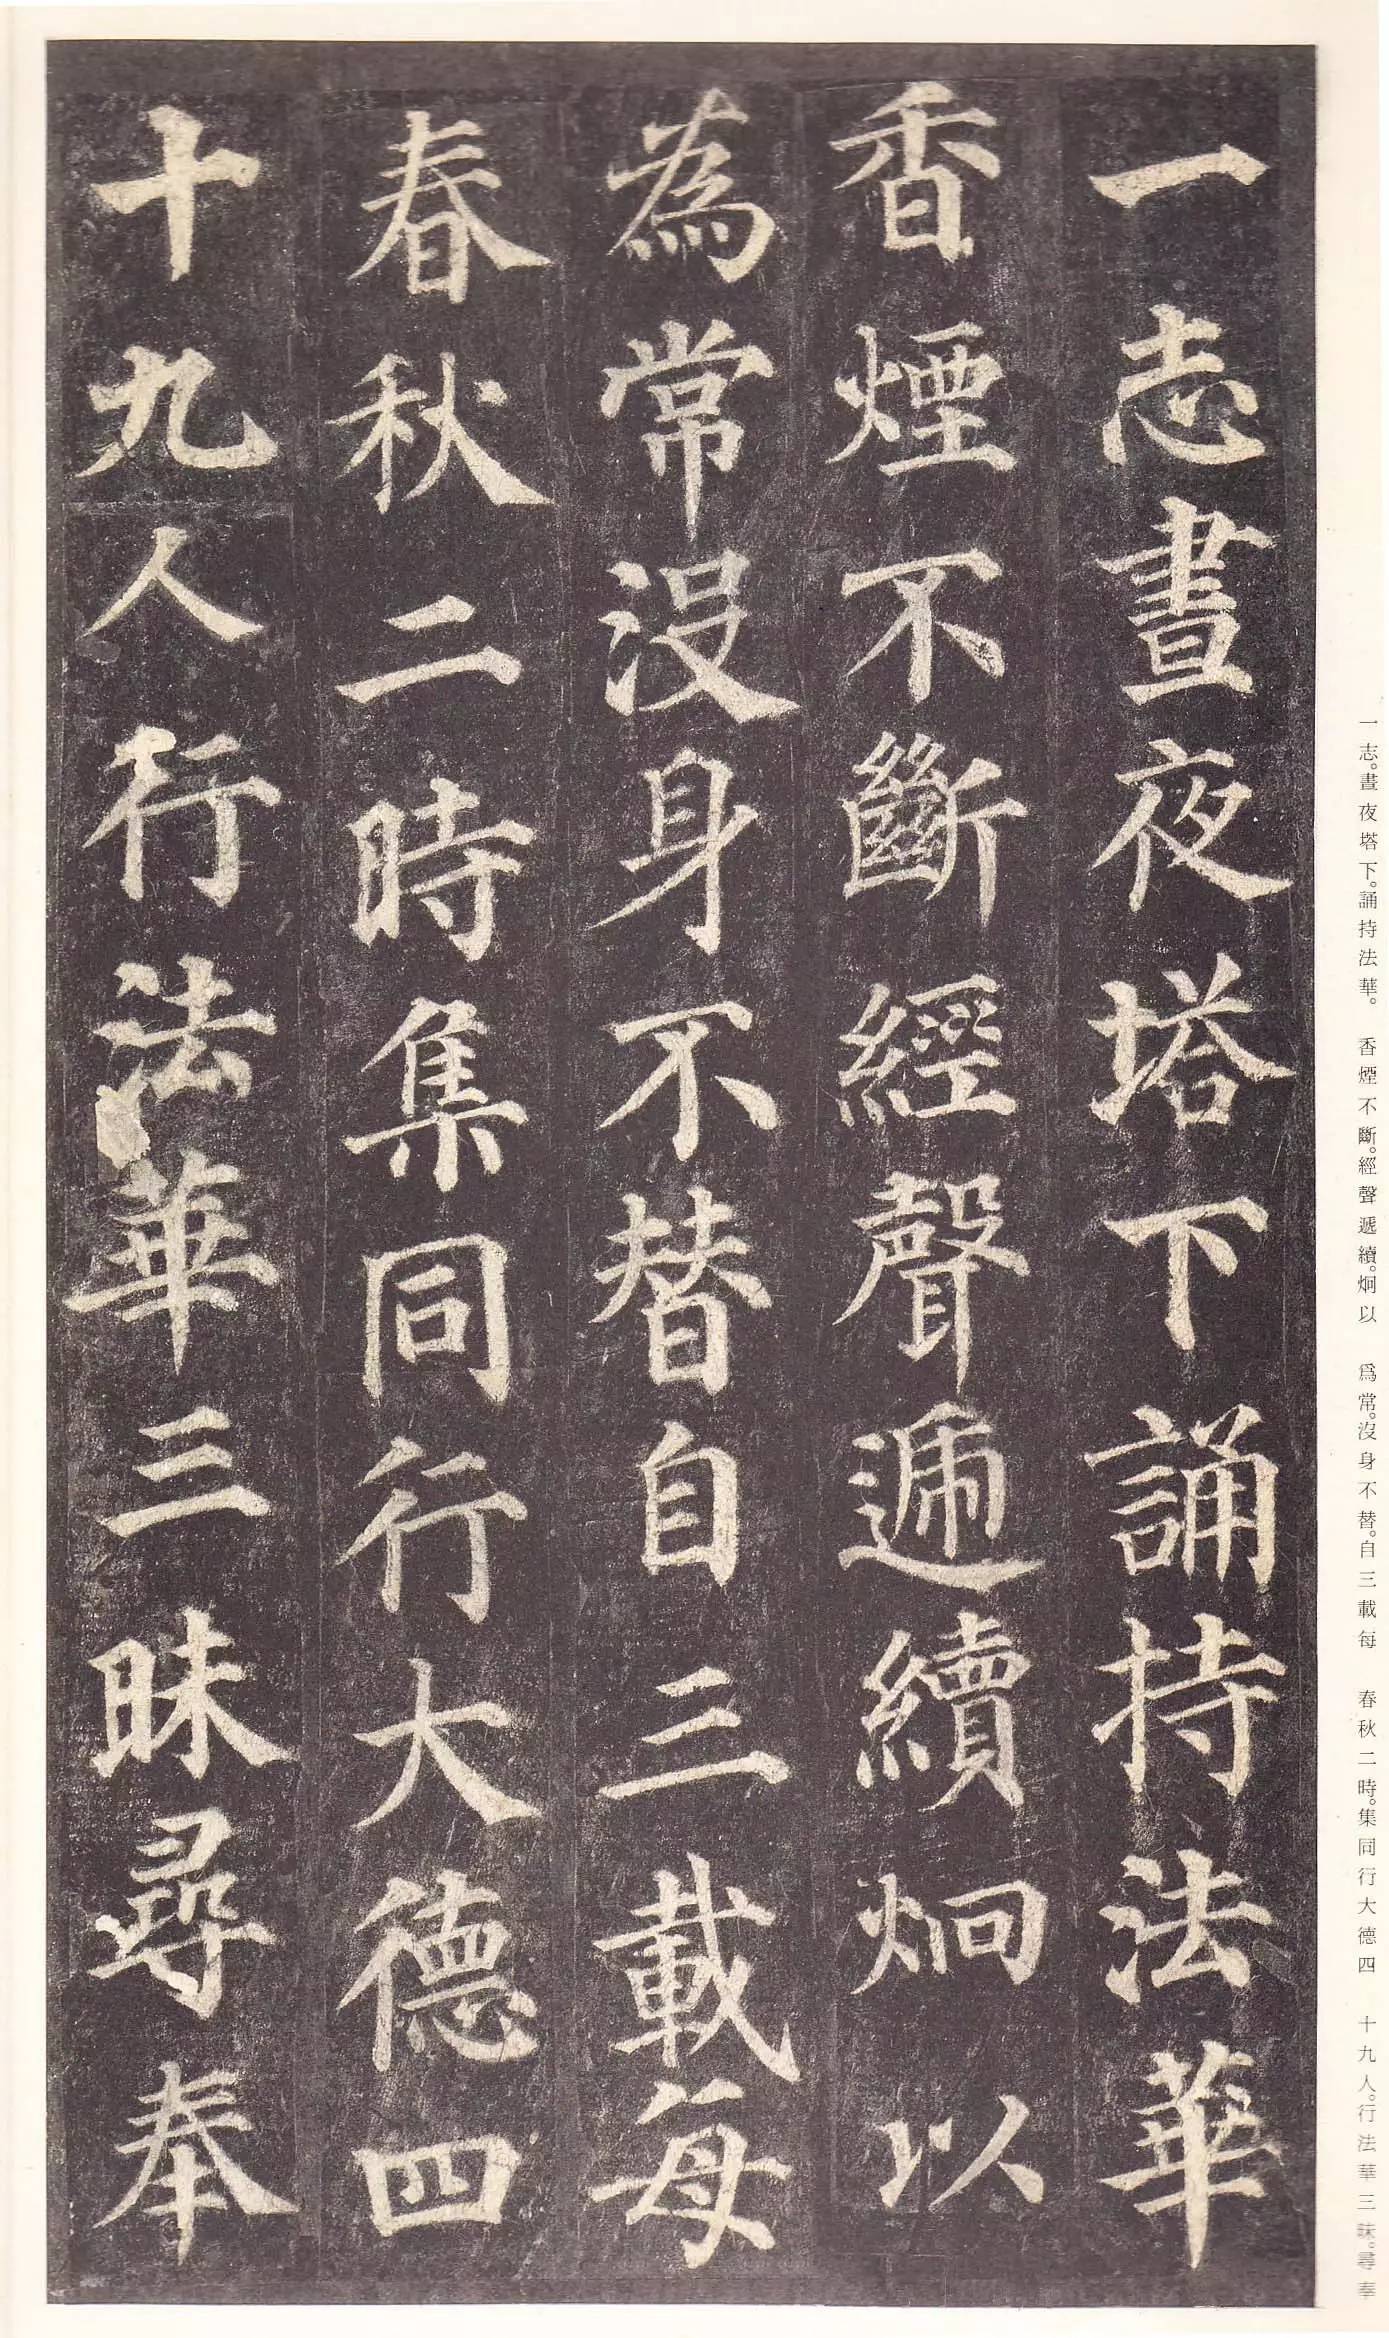 一志晝夜塔下誦持法華
香煙不斷經聲遞續炯以
為常沒身不替自三載每
春秋二時集同行大德四
十九人行法華三昧尋奉
一志。晝夜塔下。誦持法華。 香煙不斷。經聲遞續。炯以 爲常。沒身不替。自三載每 春秋二時。集同行大德四 十九人。行法華三昧。尋奉